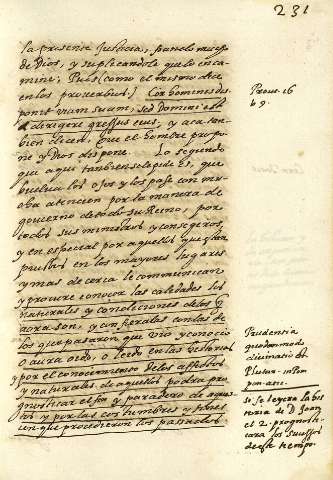 231
la presente Justacia, ponelo
de Dios, y suplicandole que lo enca
mine; Pues (como el mismo dice
en los proverbios.) Cor hominis dis
ponit viam suam, sed Domini est
dirigere gressus eius, y aca tan
bien dicen, que el hombre propo
ne y Dios dispone. Lo segundo
que aqui tanbien se le pide es, que
buelva los ojos y los pase con mu
cha atencion por la manera de
govierno de todo su Reyno, por
todos sus ministros y consegeros,
y en especial por aquellos que estan
puestos en los mayores lugares
y mas de cerca le comunican
y procure conocer las calidades los
naturales y condiciones de los
aora son, y conferalas con las de
los que pasaron que vio y conocio
o aura oido, o leido en las Historias
y por el conocimiento de los affectos
y naturales de aquellos podra pro
gnosticar el fin y paradero de aques
tos y por las costumbres y fines
en que procedieron los pasados
Prover. 16
b 9.
Prudentia
quodammodo
divinatio est
Plutar. in Pom
ponani.
Si se leyera la his
toria de D. Joan
el 2. prognosti
cara los sucessos
deste tiempo.